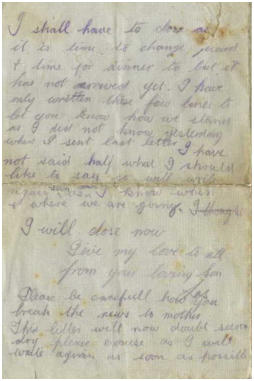 I shall have to close as
it is time to change guard
& time for dinner to but it
has not arrived yet. I have
only written these few lines to
let you know how we stand
as I did not know yesterday
when I sent last letter I have
not said half what I should
like to say so will write
again when I know when
& where we are going. I thought
I will close now
Give my love to all
from your loving son
Please be carefull how you
break the news to mother
This letter will now doubt seem
dry please excuse as I will
write again as soon as possible